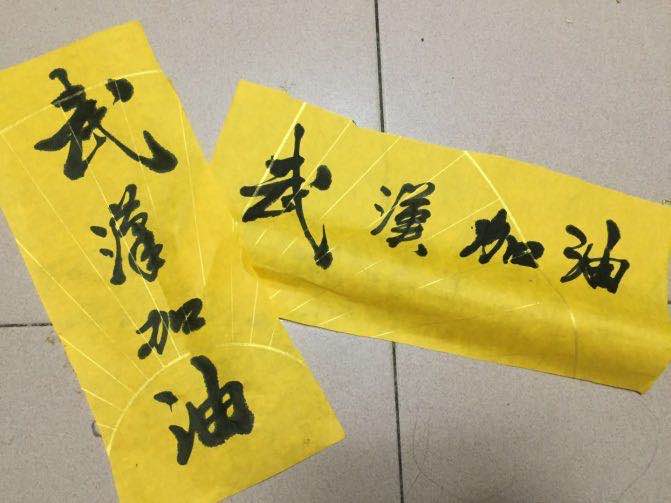 武漢加油
武漢加油